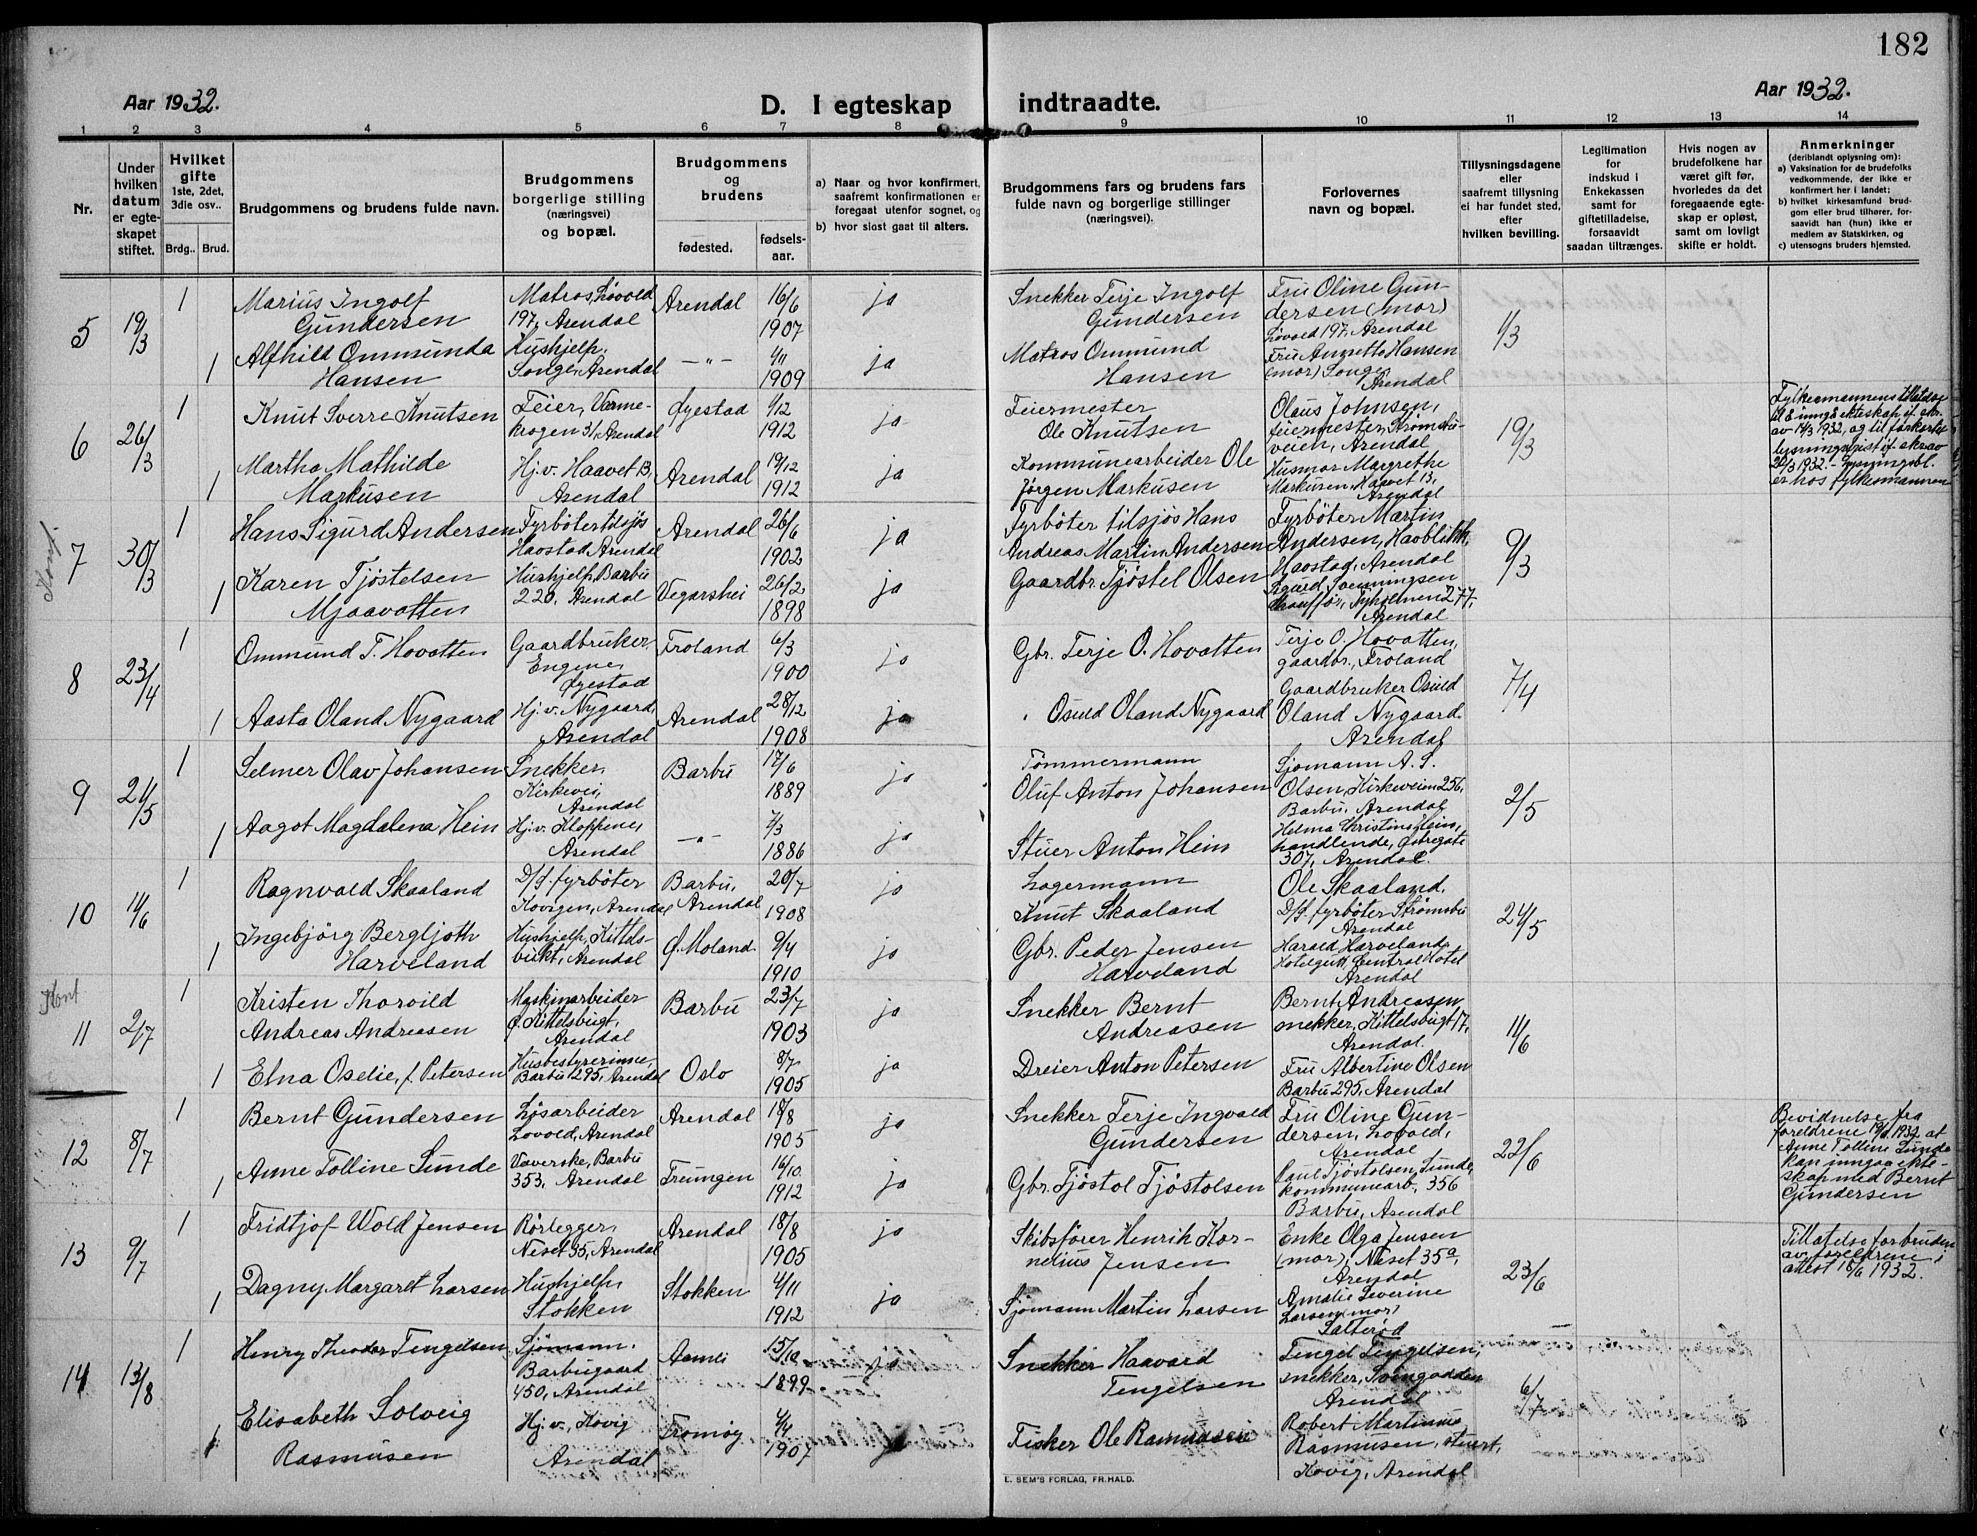 182
Aar 1932.
D. I egteskap indtraadte.
Aar 1932.
1 2 3 4 5 6 7 8 9 10 11 12 13 14
Nr.
Under hvilken datum er egteskapet stiftet.
Hvilket gifte
1ste, 2det, 3die osv..
Brdg.. Brud.
Brudgommens og brudens fulde navn.
Brudgommens borgerlige stilling (næringsvei) og bopæl.
Brudgommens og brudens
fødested. fødsels-aar.
a) Naar og hvor konfirmert, saafremt konfirmationen er foregaat utenfor sognet, og
b) hvor sidst gaat til alters.
Brudgommens fars og brudens fars fulde navn og borgerlige stillinger (næringsvei).
Forlovernes navn og bopæl.
Tillysningsdagene eller saafremt tillysning ei har fundet sted, efter hvilken bevilling.
Legitimation for indskud i Enkekassen samt for giftetilladelse, forsaavidt saadan tiltrænges.
Hvis nogen av brudefolkene har været gift før, hvorledes da det foregaaende egteskap er opløst, samt om lovligt skifte er holdt.
Anmerkninger
(deriblandt oplysning om):
a) Vaksination for de brudefolks vedkommende, der ikke er konfirmert her i landet;
b) hvilket kirkesamfund brudgom eller brud tilhører, forsaavidt han (hun) ikke er medlem av Statskirken, og
c) utensogns bruders hjemsted.
5 19/3 1 Marius Ingolf Gundersen
Matros, Lovold 197, Arendal
Arendal 16/6 1907 ja
Snekker Terje Ingolf Gundersen
Fru Oline Gundersen (mor) Lovold 197, Arendal
1/3
1 Alfhild Ommunda Hansen
Hushjelp, Songe, Arendal
— " — 1909 ja
Matros Ommund Hansen
Fru Annetta Hansen (mor) Songe, Arendal
6 26/3 1 Knut Sverre Knutsen
Feier, Varmekrogen 31, Arendal
Øyestad 1912 ja
Feiermester Ole Knutsen
Olaus Johnsen, feiermester, Strømsbuveien, Arendal
19/3
1 Martha Mathilde Markusen
Hj.v. Haavet 13, Arendal
Arendal 19/12 1912 ja
Kommunearbeider Ole Jørgen Markusen
Husmor Margrethe Markusen, Haavet 13, Arendal
7 30/3 1 Hans Sigurd Andersen
Fyrbøter tilsjøs Haostad Arendal
Arendal 26/6 1902 ja
Fyrbøter tilsjøs Hans Andreas Martin Andersen
Fyrbøter Martin Andersen, Havblikk, Haostad, Arendal
9/3
1 Karen Tjøstelsen Mjaavatten
Hushjelp, Barbu 220, Arendal
Vegarshei 26/2 1898 ja
Gaardbr. Tjøstel Olsen
Sigurd Svenningsen chauffør, Tyholmen 277, Arendal
8 23/4 1 Ommund T. Hovatten
Gaardbruker, Engene, Øyestad
Froland 6/3 1900 ja
Gbr. Terje O. Hovatten
Terje O. Hovatten, gaardbr., Froland
7/4
1 Aasta Oland Nygaard
Hj.v. Nygaard Arendal
Arendal 28/12 1908 ja
" Osuld Oland Nygaard
Gaardbruker Osuld Oland Nygaard Arendal
9 21/5 1 Selmer Olav Johansen
Snekker, Kirkevei, Arendal
Barbu 17/6 1889 ja
Tømmermann Oluf Anton Johansen
Sjømann A. S. Olsen, Kirkeveien 256, Barbu, Arendal
2/5
1 Aagot Magdalena Hein
Hj.v. Kloppene, Arendal
— " — 7/3 1886 ja
Stuer Anton Hein
Helma Christine Hein, handlende, Østregate 307, Arendal.
10 11/6 1 Ragnvald Skaaland
D/S. fyrbøter Kovigen, Arendal
Barbu, Arendal 20/7 1908 ja
Lagermann Knut Skaaland
Ole Skaaland, D/S. fyrbøter Strømsbu Arendal
24/5
1 Ingebjørg Bergljoth Harveland
Hushjelp, Kittelsbukt, Arendal
Ø. Moland 9/4 1910 ja
Gbr. Peder Jensen Harveland
Harald Harveland, Hotelgutt, Central Hotel Arendal
11 2/7 1 Kristen Thorvild Andreas Andreasen
Maskinarbeider Ø. Kittelsbugt, Arendal
Barbu 23/7 1903 ja
Snekker Bernt Andreasen
Bernt Andreasen snekker, Kittelsbugt 17, Arendal.
11/6
1 Elna Oselie, f. Petersen
Husbestyrerinne, Barbu 295, Arendal
Oslo 8/7 1905 ja
Dreier Anton Petersen
Fru Albertine Olsen Barbu 295, Arendal
12 8/7 1 Bernt Gundersen
Løsarbeider Lovold, Arendal
Arendal 18/8 1905 ja
Snekker Terje Ingvald Gundersen
Fru Oline Gundersen, Lovold, Arendal
22/6
Bevidnelse fra foreldrene 1932 at Anne Tolline Sunde kan inngaa ekteskap med Bernt Gundersen
1 Anne Tolline Sunde
Væverske, Barbu 353, Arendal
Treungen 16/10 1912 ja
Gbr. Tjøstol Tjøstolsen
Paul Tjøstolsen Sunde, kommunearb. 356 Barbu, Arendal
13 9/7 1 Fridtjof Wold Jensen
Rørlegger, Neset 35, Arendal
Arendal 18/8 1905 ja
Skibsfører Henrik Kornelius Jensen
Enke Olga Jensen (mor), Neset 35a, Arendal
23/6
Tillatelse for bruden av foreldrene i attest 18/6 1932.
1 Dagny Margaret Larsen
Hushjelp, Stokken
Stokken 4/11 1912 ja
Sjømann Martin Larsen
Amalie Severine Larsen (mor) Salterød
14 13/8 1 Henry Theodor Tengelsen
Sjømann, Barbugaard 450, Arendal
Aamli 15/10 1899 ja
Snekker Haavard Tengelsen
Tengel Tengelsen, snekker, Svingodden Arendal
6/7
1 Elisabeth Solveig Rasmusen
Hj.v., Kovig Arendal
Tromøy 1907 ja
Fisker Ole Rasmussen
Robert Martinius Rasmusen, stuert, Kovig, Arendal
E. SEM'S FORLAG, FR.HALD.